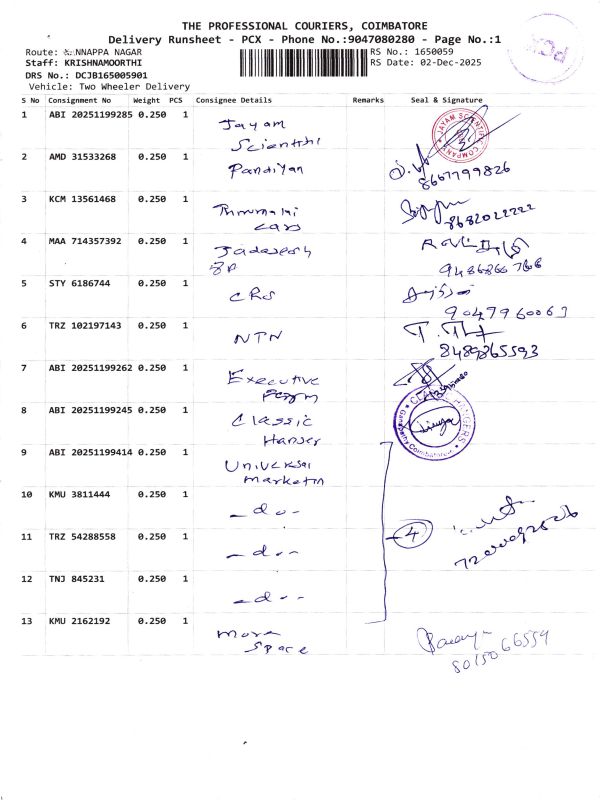 THE PROFESSIONAL COURIERS, COIMBATORE
Delivery Runsheet - PCX - Phone No.:9047080280 - Page No.:1
PCX
Route: KANNAPPA NAGAR
RS No.: 1650059
Staff: KRISHNAMOORTHI
RS Date: 02-Dec-2025
DRS No.: DCJB165005901
Vehicle: Two Wheeler Delivery
S No Consignment No Weight PCS Consignee Details Remarks Seal & Signature
1 ABI 20251199285 0.250 1 Jayam
JAYAM SCIENTIFIC COMPANY
2 AMD 31533268 0.250 1 Pandiyan
8667799826
3 KCM 13561468 0.250 1
Cars
8682022222
4 MAA 714357392 0.250 1
5 STY 6186744 0.250 1 CRS
9047960063
6 TRZ 102197143 0.250 1 NTN
8489865593
7 ABI 20251199262 0.250 1 Executive
8 ABI 20251199245 0.250 1 Classic
Hanger
HANGERS
Coimbatore
9 ABI 20251199414 0.250 1 Universal
Marketin
10 KMU 3811444 0.250 1 -do-
11 TRZ 54288558 0.250 1 -do--
4
12 TNJ 845231 0.250 1 -do--
13 KMU 2162192 0.250 1 More
Space